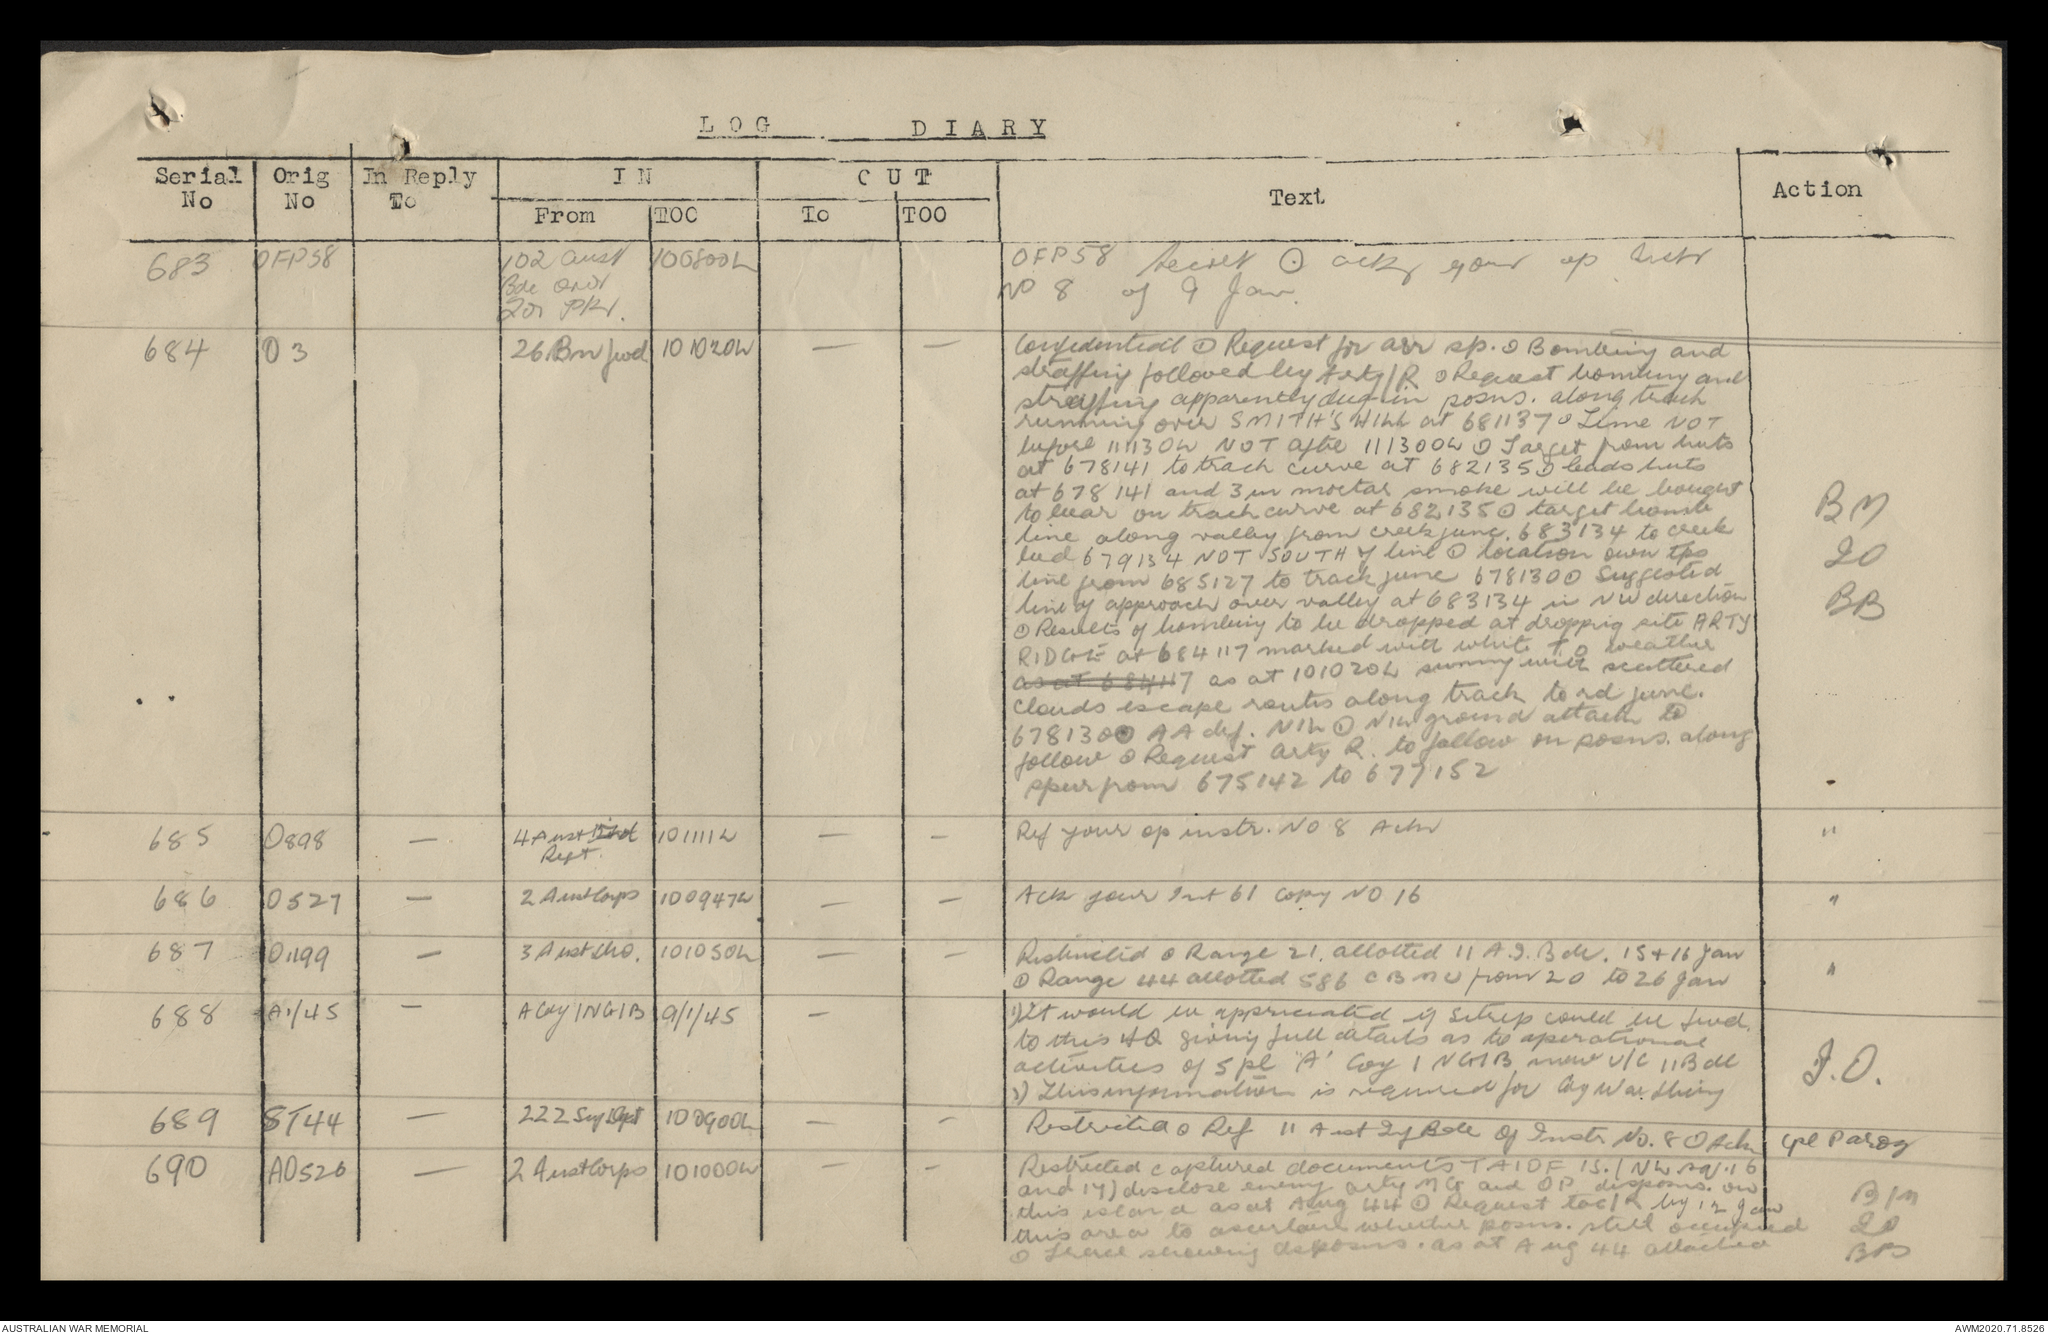 LOG DIARY
Serial No
Orig No
In Reply To
IN
From
TOO
OUT
To
TOO
Text
Action
683 OFP58 102 Aust 100800L OFP58 Secret ⊙ ack your op instr
Bde NO 8 of 9 Jan.
684 O3 26 Bn fwd 101020L — — Confidential ⊙ Request for air sp. ⊙ Bombing and
straffing followed by Arty/R ⊙ Request bombing and
straffing apparently dug-in posns. along track
running over SMITH'S HILL at 681137 ⊙ Time NOT
before 111130L NOT after 111300L ⊙ Target from huts
at 678141 to track curve at 682135 ⊙ leads huts
at 678141 and 3 in mortar smoke will be bought
to bear on track curve at 682135 ⊙ target bomb
line along valley from creek junc. 683134 to creek
bed 679134 NOT SOUTH of line ⊙ location own tps
line from 685127 to track junc 678130 ⊙ Suggested
line of approach over valley at 683134 in NW direction
⊙ Results of bombing to be dropped at dropping site ARTY
RIDGE at 684117 marked with white T ⊙ weather
as at 684117 as at 101020L sunny with scattered
clouds escape routes along track to rd junc.
678130 ⊙ AA def. NIL ⊙ NIL ground attack to
follow ⊙ Request Arty R. to follow on posns. along
spur from 675142 to 677152
BM
IO
BB
685 O898 — 4 Aust Fd Regt. 101111L — — Ref your op instr. NO 8 Ack "
686 O527 — 2 Aust Corps 100947L — — Ack your Int 61 copy NO 16 "
687 O1199 — 3 Aust Div. 101050L — — Restricted ⊙ Range 21. allotted 11 A.I. Bde. 15 + 16 Jan
⊙ Range 44 allotted 586 C B M U from 20 to 26 Jan "
688 A1/45 — A Coy 1NGIB 9/1/45 — 1) It would be appreciated if Sitrep could be fwd.
to this HQ giving full details as to operational
activities of 5 pl 'A' Coy 1 NGIB now U/C 11 Bde
2) This information is required for Coy War Diary
I.O.
689 ST44 — 222 Sup Dpt 100900L — — Restricted ⊙ Ref 11 Aust Inf Bde Op Instr No. 8 ⊙ Ack Cpl
690 AO520 — 2 Aust Corps 101000L — — Restricted captured documents TAIOF
and 17) disclose enemy arty MG and OP disposns. on
this island as at Aug 44 ⊙ Request tac/R by 12 Jan
this area to ascertain whether posns. still occupied
⊙ Trace showing disposns. as at Aug 44 attached
BM
IO
BB
AUSTRALIAN WAR MEMORIAL
AWM2020.71.8526